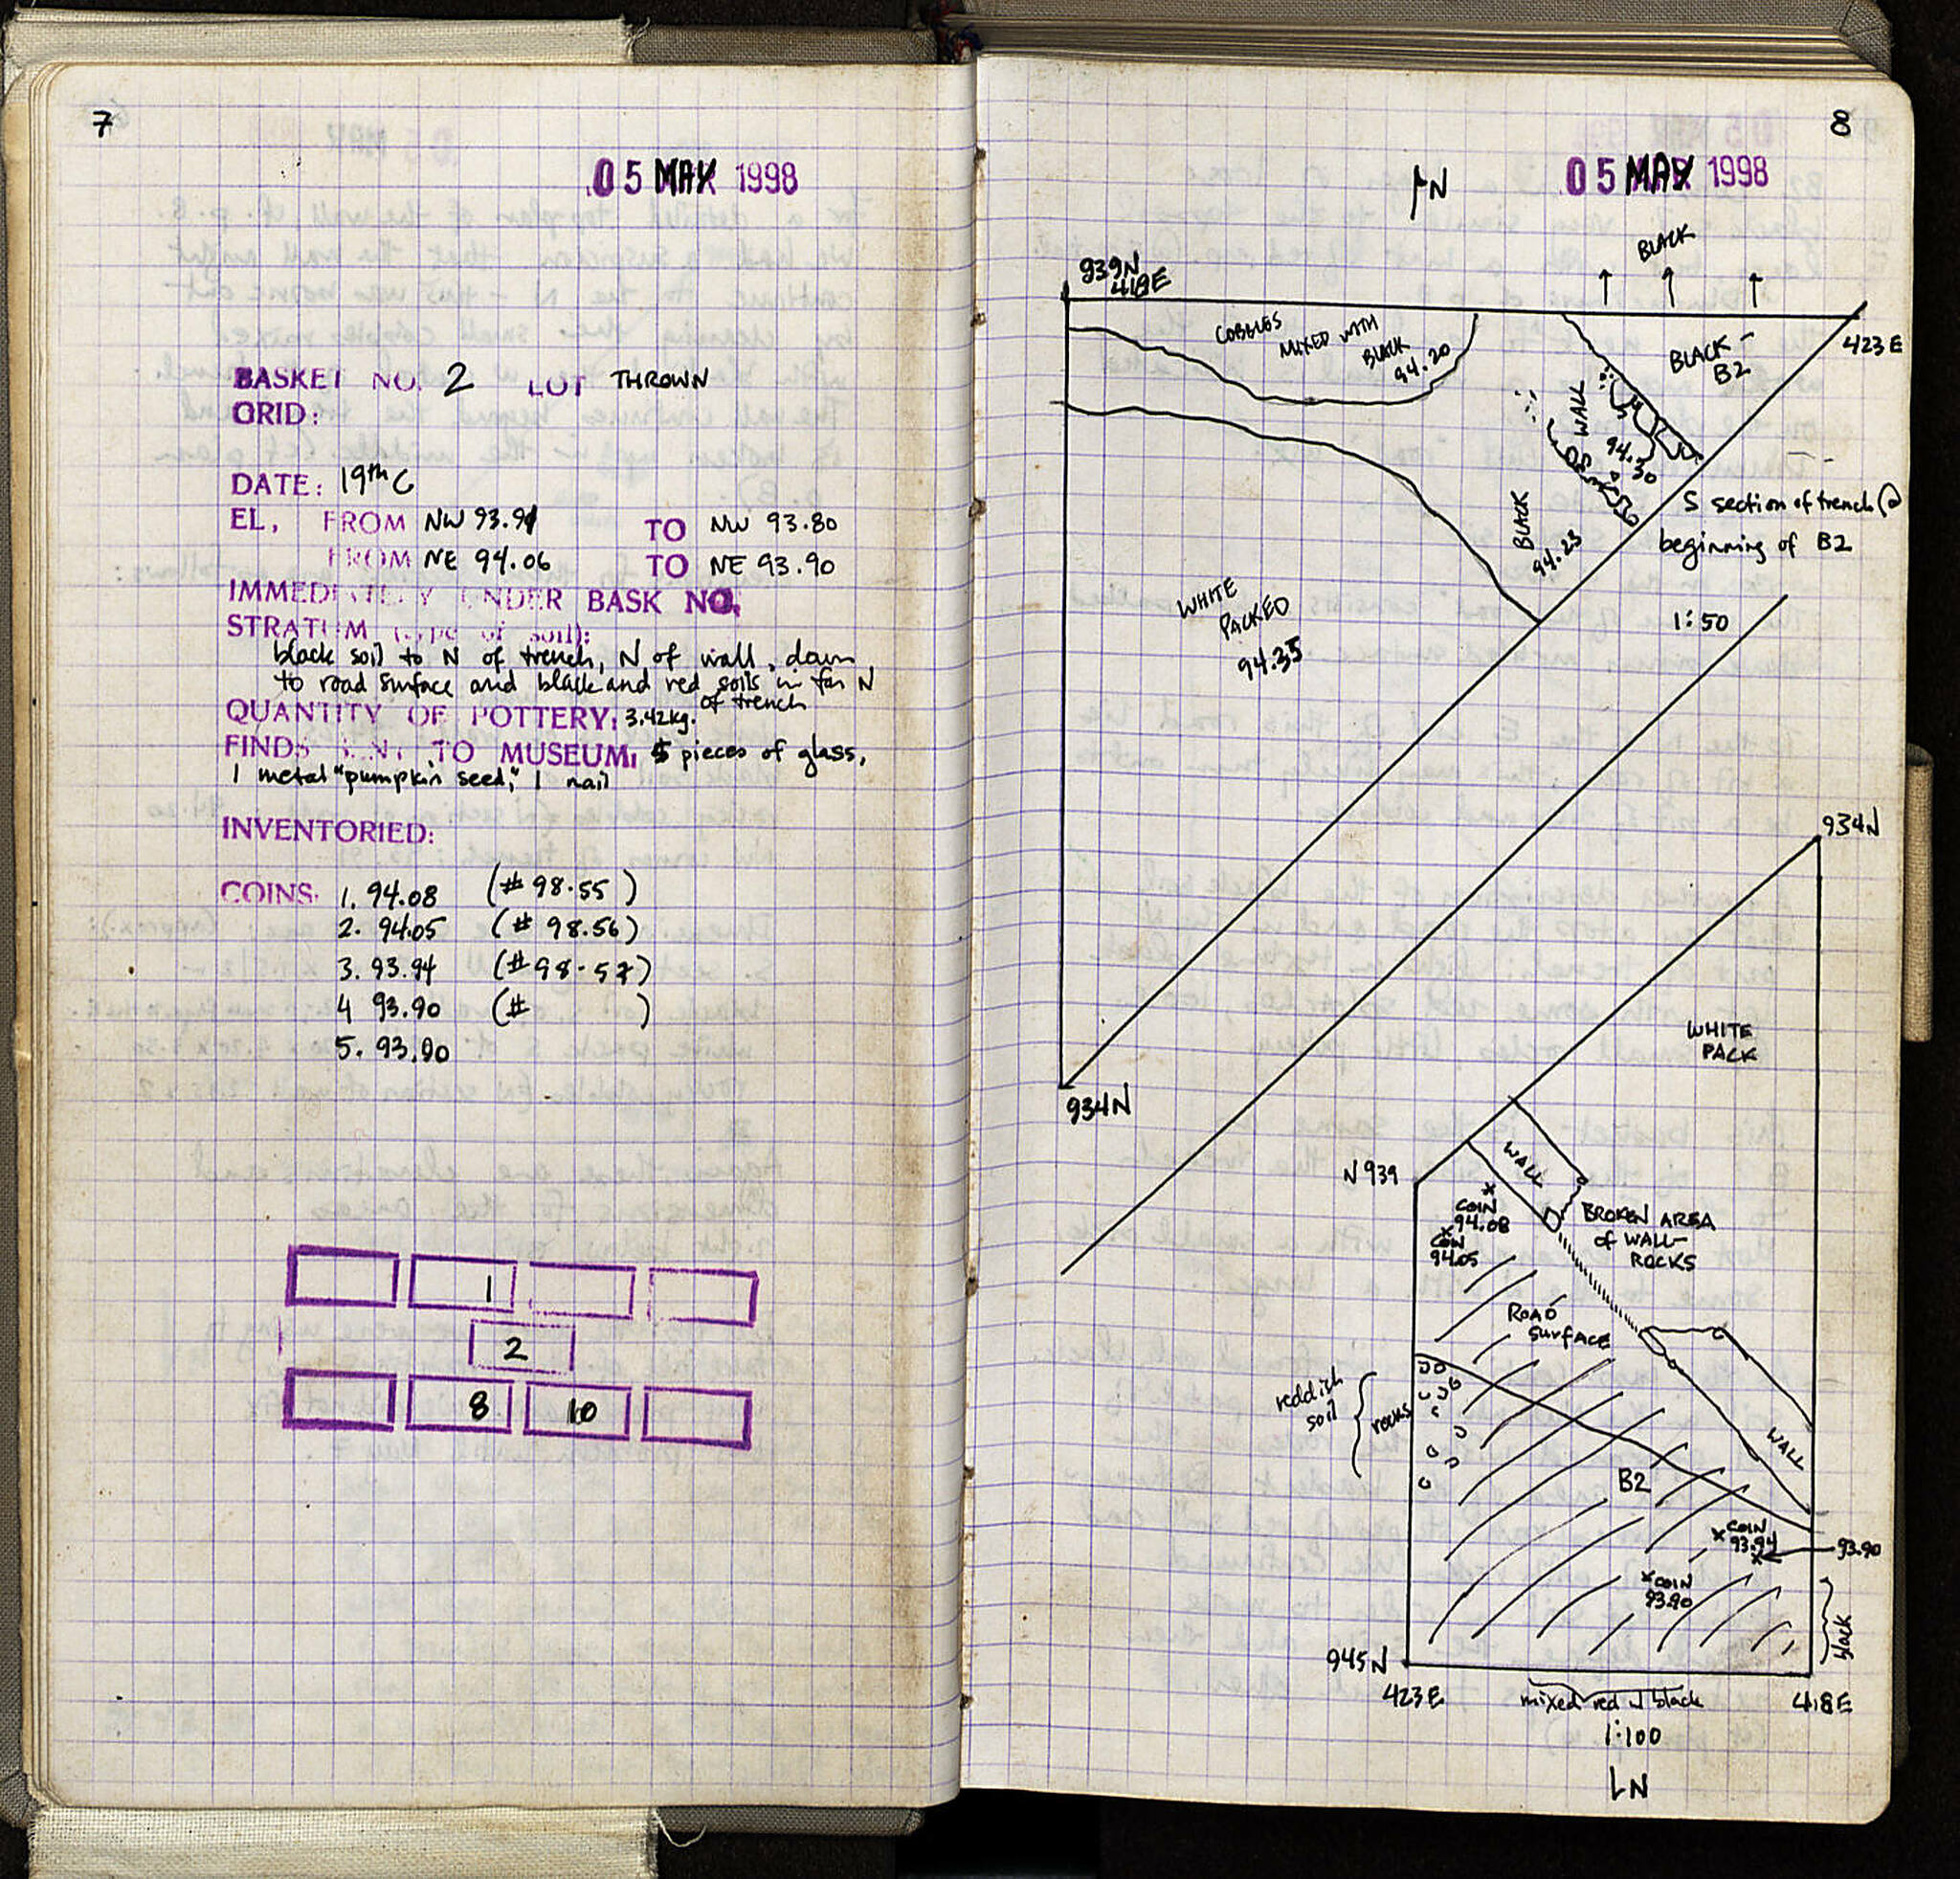 7
05 MAY 1998
BASKET NO. 2 LOT THROWN
GRID:
DATE: 19th C
EL, FROM NW 93.91 TO NW 93.80
FROM NE 94.06 TO NE 93.90
IMMEDIATELY UNDER BASK NO.
STRATUM (type of soil):
black soil to N of trench, N of wall, down
to road surface and black and red soils in far N
of trench
QUANTITY OF POTTERY: 3.42kg.
FINDS SENT TO MUSEUM: 5 pieces of glass,
1 metal "pumpkin seed," 1 nail
INVENTORIED:
COINS. 1. 94.08 (# 98-55)
2. 94.05 (# 98-56)
3. 93.94 (# 98-57)
4 93.90 (# )
5. 93.90
1
2
8 10
8
05 MAY 1998
N
BLACK
939N
418E
COBBLES
MIXED WITH
BLACK
94.20
BLACK -
B2
423E
WALL
94.30
BLACK
94.23
S section of trench @
beginning of B2
1:50
WHITE
PACKED
94.35
934N
934N
WHITE
PACK
WALL
N939
COIN
94.08
COIN
94.05
BROKEN AREA
of WALL-
ROCKS
ROAD
surface
reddish
soil
rocks
B2
WALL
COIN
93.94
93.90
COIN
93.90
black
945N
423E
mixed red & black
418E
1:100
N